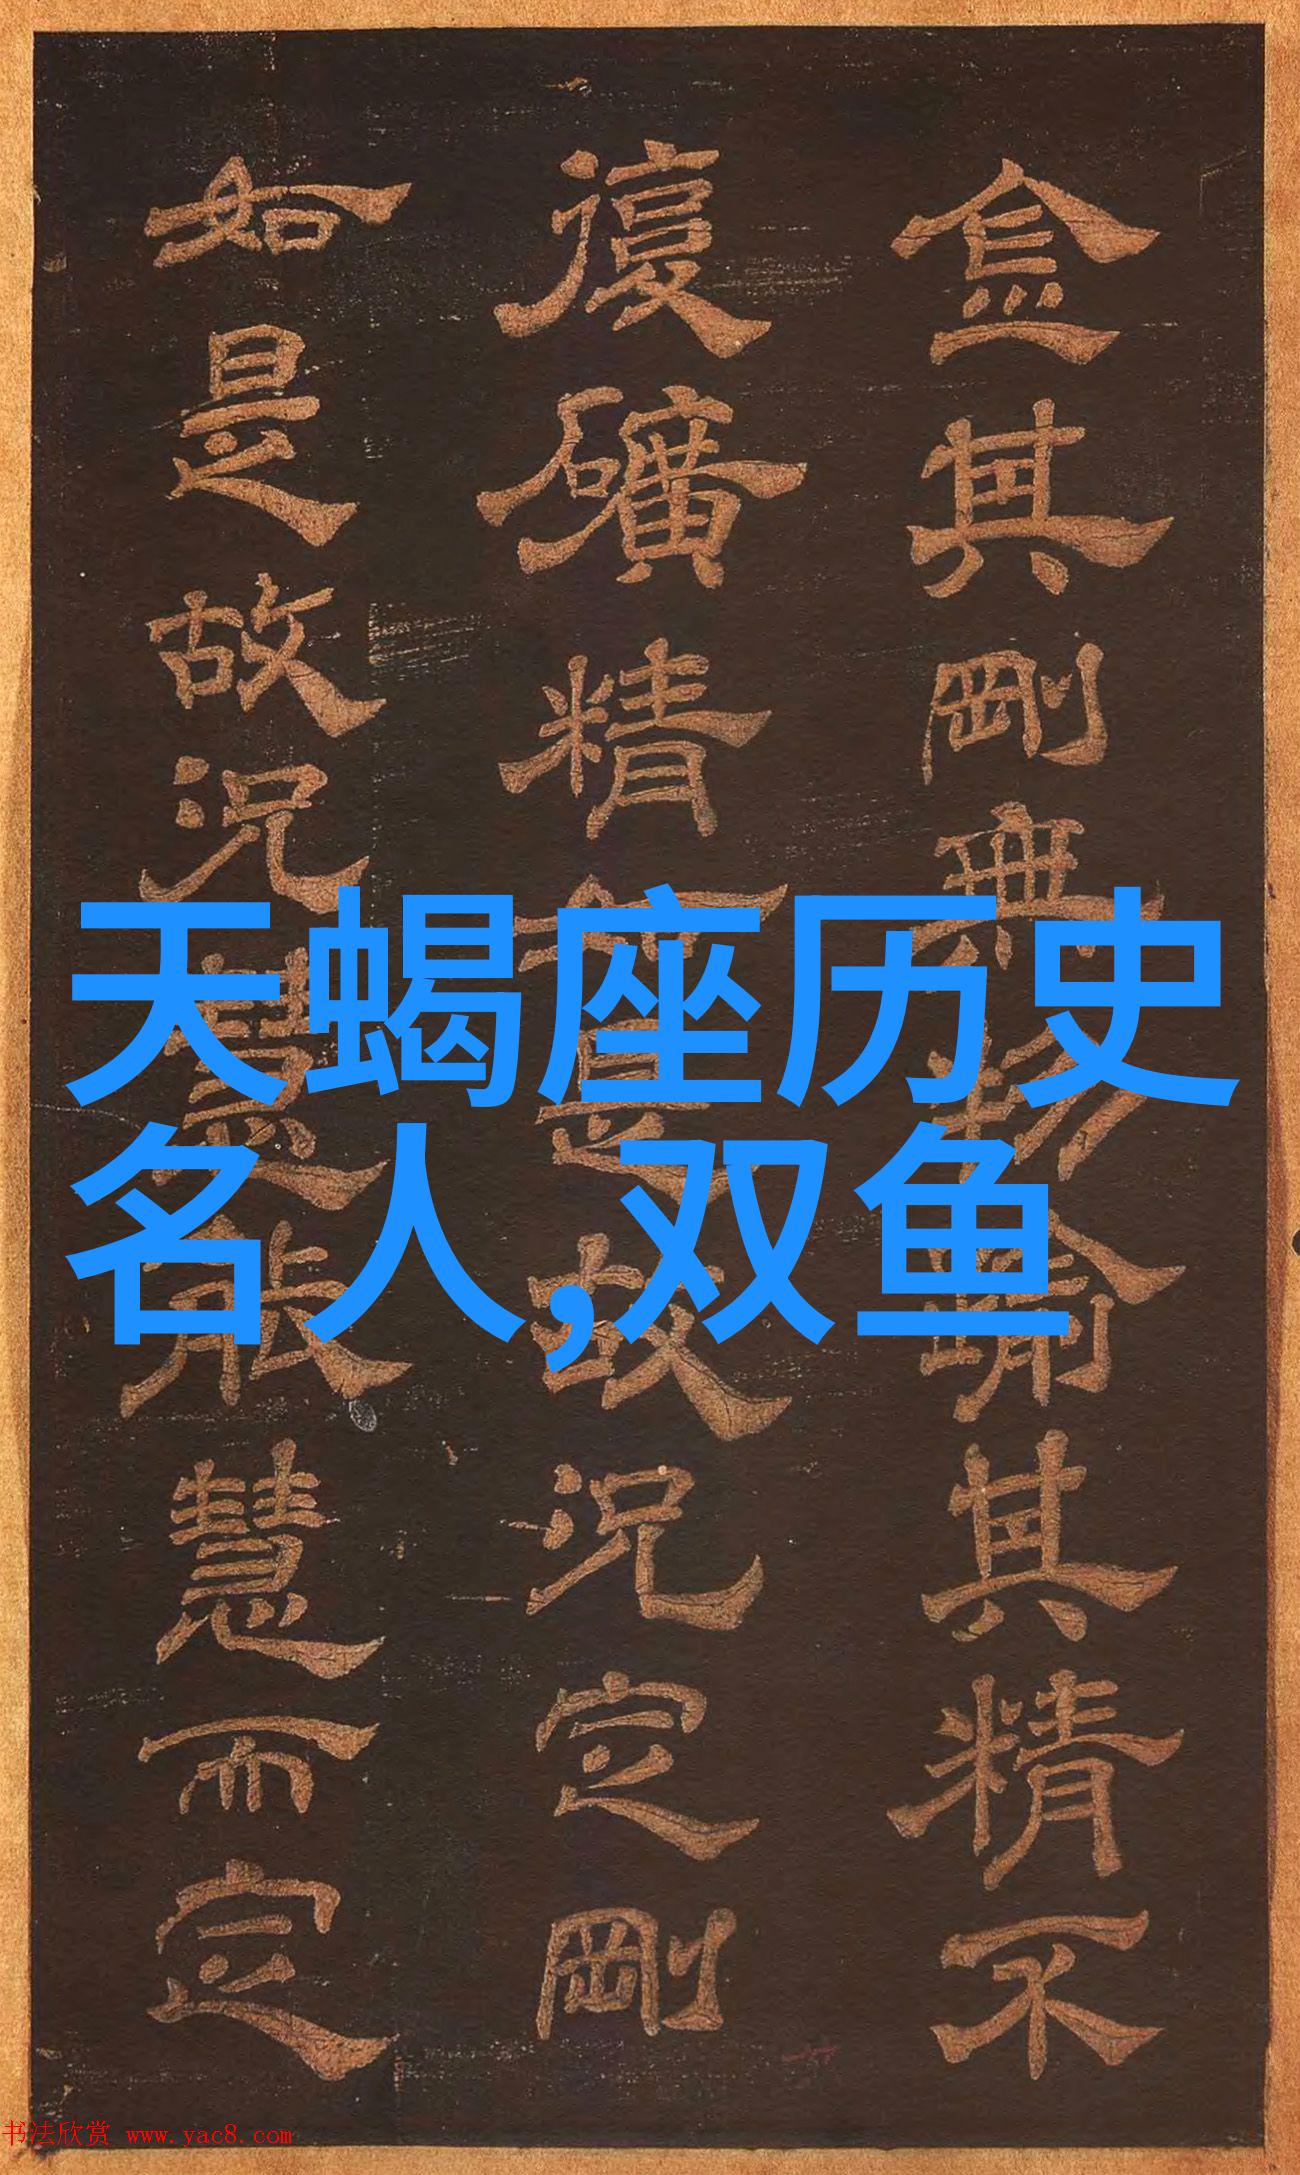 天蝎座历史
名人,双鱼
金其剛無物踰其精不
復礦精如是故況定剛
如是故況慧能慧而定
书法欣赏 www.yac8.com